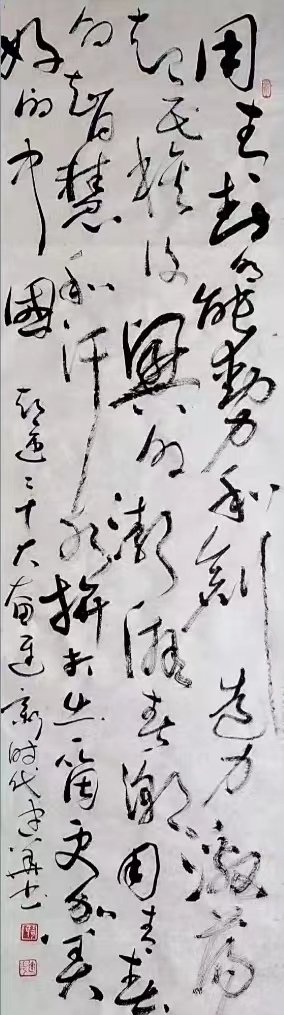 用青春的能动力和创造力激荡
起民族复兴的澎湃春潮用青春
的智慧和汗水拼打出一个更加美
好的中國
喜迎二十大奋进新时代 书